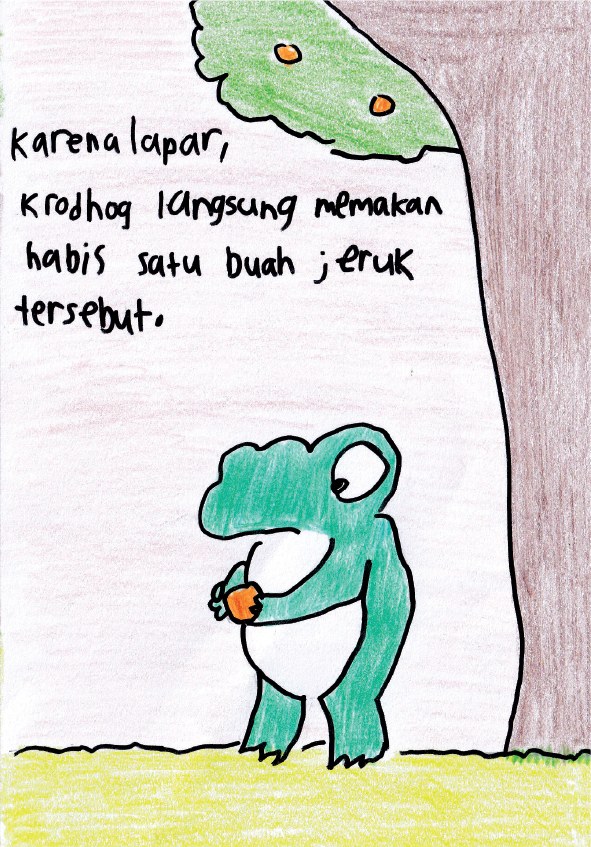 karena lapar,
krodhog langsung memakan
habis satu buah jeruk
tersebut.